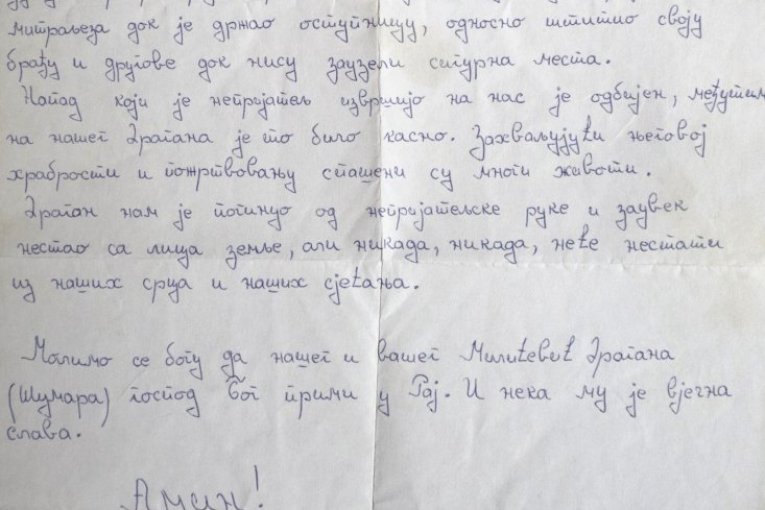 митраљеза док је држао оступницу, односно штитио своју
брађу и другове док нису заузели сигурна места.
Напад који је непријатељ извршио на нас је одбијен, међутим
на нашег Драгана је то било касно. Захваљујући његовој
храбрости и пожртвовању спашени су многи животи.
Драган нам је погинуо од непријатељске руке и заувек
нестао са лица земље, али никада, никада, неће нестати
из наших срца и наших сјећања.
Молимо се богу да нашег и вашег Милићевић Драгана
(Шумара) господ Бог прими у Рај. И нека му је вјечна
слава.
Амин!